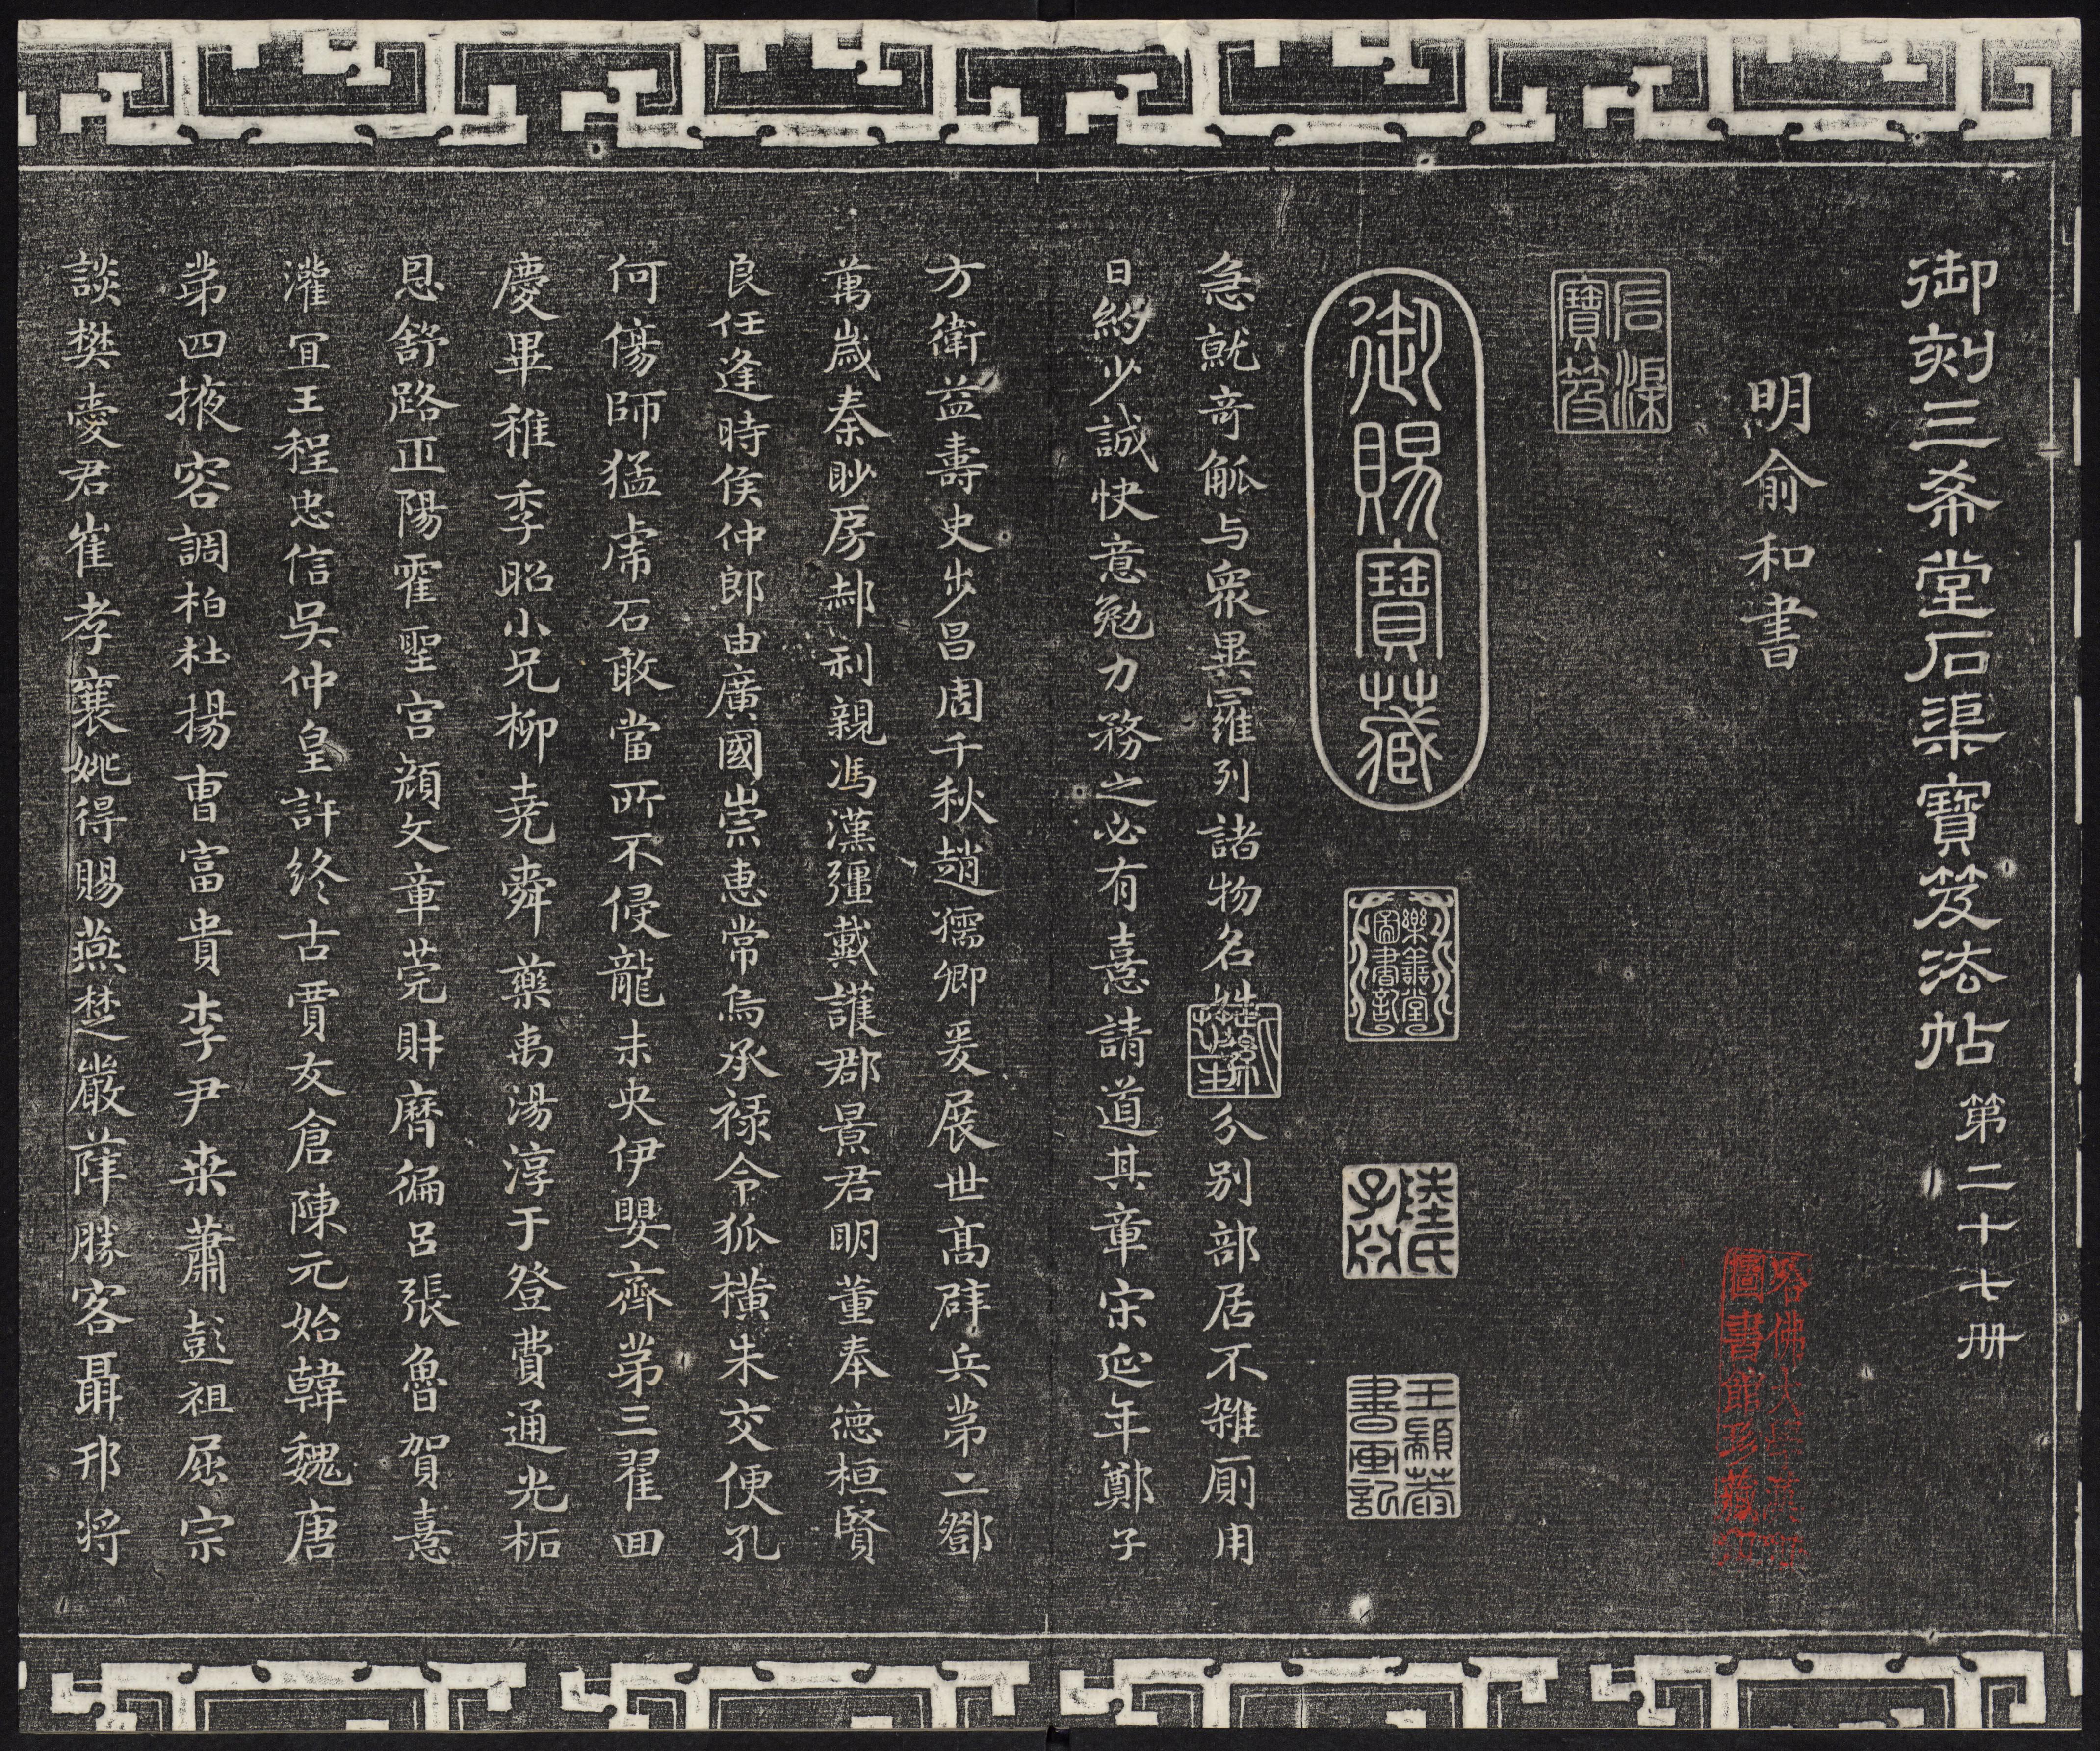 御刻三希堂石渠寶笈法帖 第二十七册
明俞和書
石渠寶笈
哈佛大學漢和圖書館珍藏印
御賜寶藏
樂善堂圖書記
陸氏子
王顯
書画記
急就奇觚与衆異羅列諸物名姓分別部居不雜厠用
日約少誠快意勉力務之必有憙請道其章宋延年鄭子
方衛益壽史步昌周千秋趙孺卿爰展世高辟兵第二鄧
萬歲秦眇房郝利親馮漢彊戴護郡景君明董奉德桓賢
良任逢時侯仲郎由廣國崇惠常烏承祿令狐橫朱交便孔
何傷師猛虎石敢當所不侵龍未央伊嬰齊第三翟回
慶畢稚季昭小兄柳堯舜藥禹湯淳于登費通光柘
恩舒路正陽霍聖宮顏文章莞財曆偏呂張魯賀憙
灌宜王程忠信吳仲皇許終古賈友倉陳元始韓魏唐
第四掖容調柏杜揚曹富貴李尹桒蕭彭祖屈宗
談樊愛君崔孝襄姚得賜燕楚嚴薛勝客聶邗将